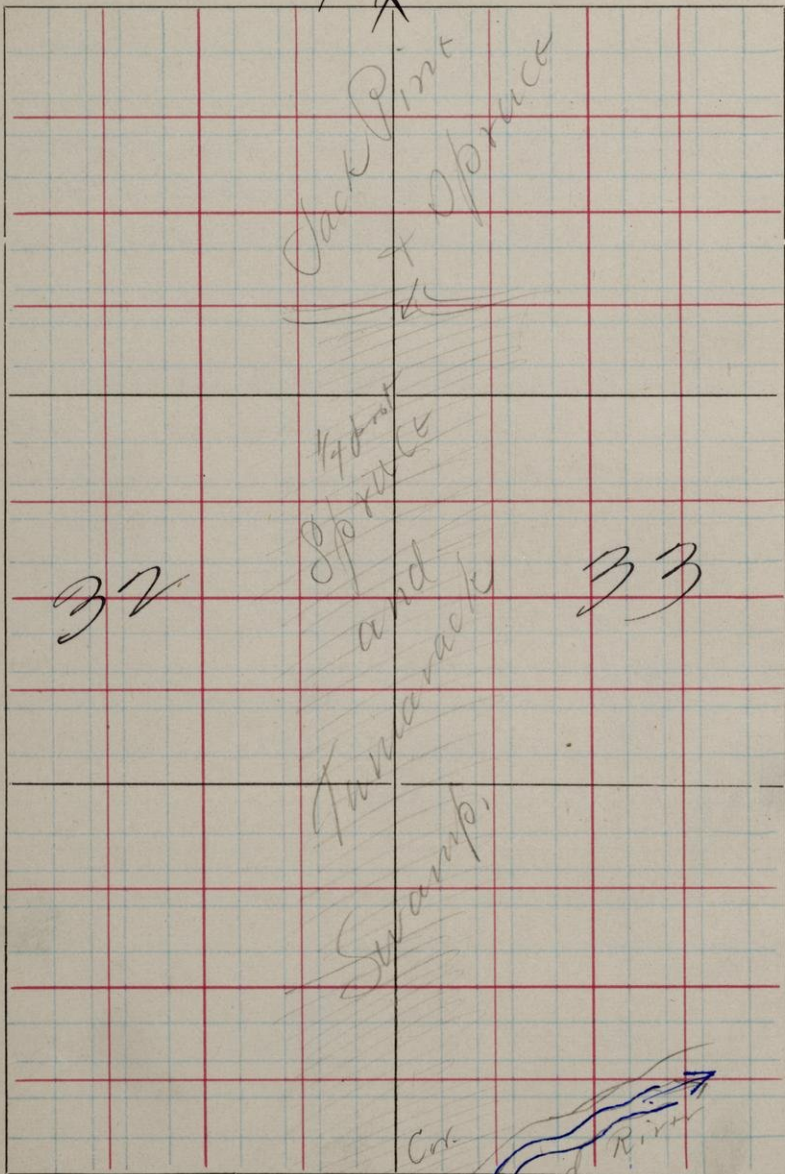 Jack Pine
+ Spruce
1/4 post
Spruce
and
32
33
Tamarack
Swamp.
Cor.
River